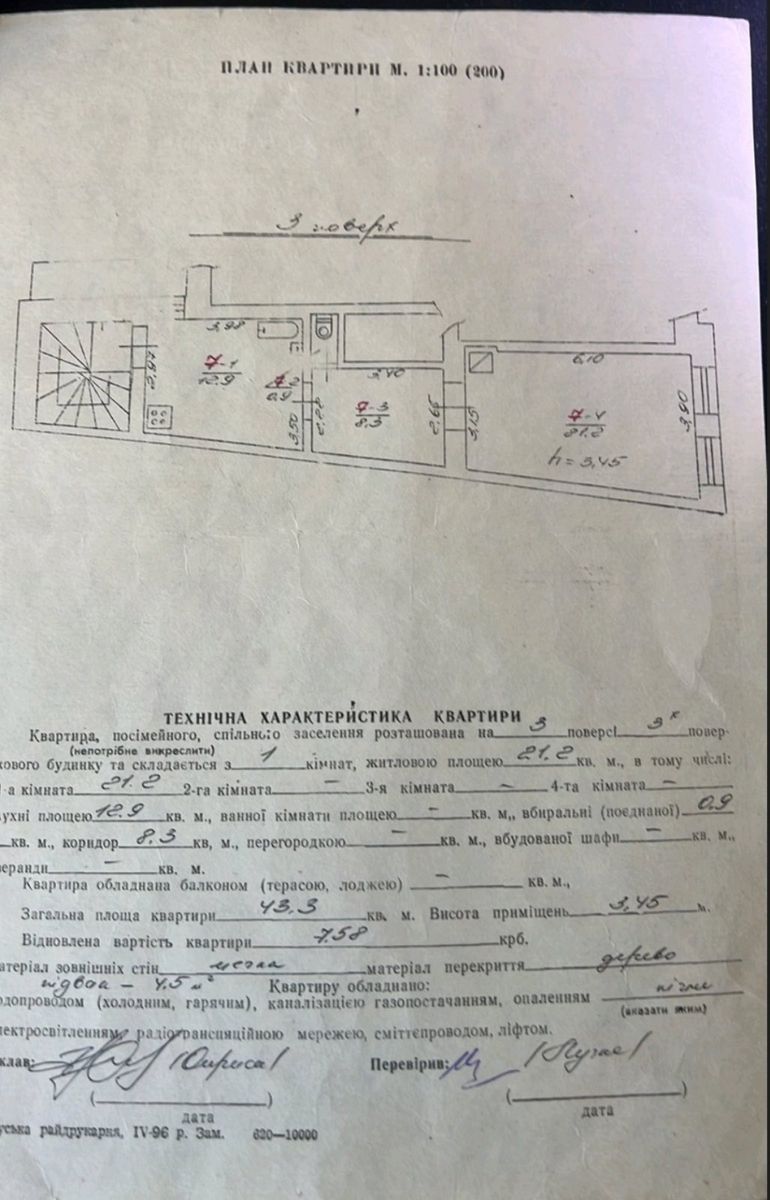 ПЛАН КВАРТИРИ М. 1:100 (200)
3 поверх
3,98
2,97
7-1
12.9
7-2
0,9
3,50
2,28
3,40
7-3
8.3
2,65
3,15
6,10
7-4
21.2
h = 3,45
3,90
ТЕХНІЧНА ХАРАКТЕРИСТИКА КВАРТИРИ
Квартира, посімейного, спільного заселення розташована на 3 поверсі 3х повер-
(непотрібне викреслити)
кового будинку та складається з 1 кімнат, житловою площею 21.2 кв. м., в тому числі:
-а кімната 21.2 2-га кімната — 3-я кімната — 4-та кімната —
ухні площею 12.9 кв. м., ванної кімнати площею — кв. м,, вбиральні (поєднаної) 0,9
кв. м., коридор 8.3 кв, м., перегородкою — кв. м., вбудованої шафи — кв. м.,
еранди — кв. м.
Квартира обладнана балконом (терасою, лоджею) — кв. м.,
Загальна площа квартири 43.3 кв. м. Висота приміщень 3,45 м.
Відновлена вартість квартири 758 крб.
атеріал зовнішніх стін цегла матеріал перекриття дерево
підвал – 4.5 м² Квартиру обладнано:
одопроводом (холодним, гарячим), каналізацією газопостачанням, опаленням пічне
(вказати яким)
лектросвітленням, радіотрансляційною мережею, сміттєпроводом, ліфтом.
клав: Перевірив:
( ) ( )
дата дата
уська райдрукарня, IV-96 р. Зам. 620—10000